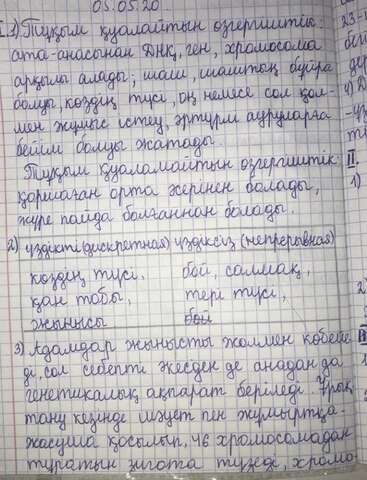 05.05.20
I. 3) Тұқым қуалайтын өзгергіштік:
ата-анасынан ДНҚ, ген, хромосома
арқылы алады; шаш, шаштың бұйра
болуы, көздің түсі, оң немесе сол қол-
мен жұмыс істеу, әртүрлі ауруларға
бейім болуы жатады.
Тұқым қуаламайтын өзгергіштік:
қоршаған орта әсерінен болады,
жүре пайда болғаннан болады.
2) үздікті (дискретная) үздіксіз (непрерывная)
көздің түсі, бой, салмақ,
қан тобы, тері түсі,
жынысы бой
3) Адамдар жынысты жолмен көбейе-
ді, сол себепті әкеден де анадан да
генетикалық ақпарат беріледі. Ұрық-
тану кезінде шәует пен жұмыртқа-
жасуша қосылып, 46 хромосомадан
тұратын зигота түзеді, хромо-
23-
II.
1)
2)